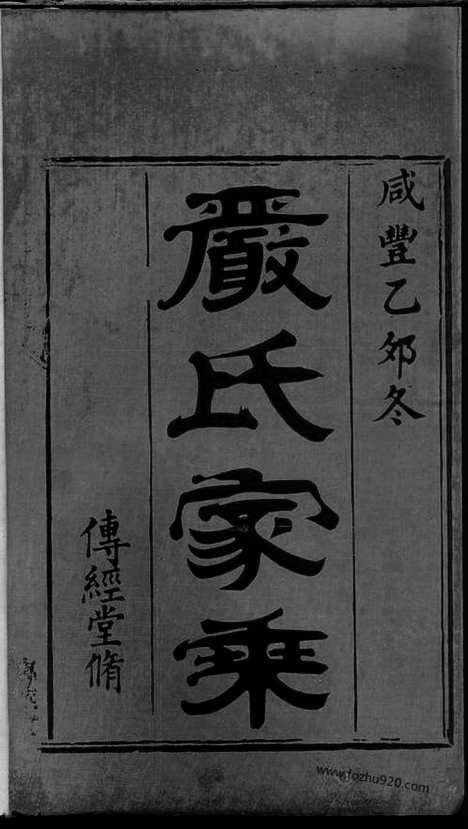 咸豐乙夘冬
嚴氏家乗
傳經堂脩
www.fozhu920.com